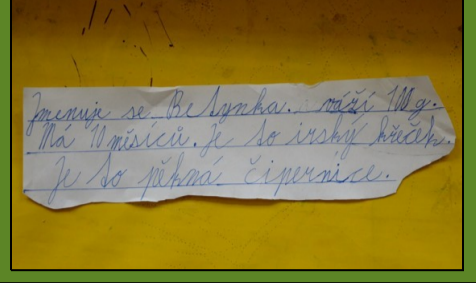 Jmenuje se Betynka. váží 100 g.
Má 10 měsíců. Je to irský křeček.
Je to pěkná čipernice.